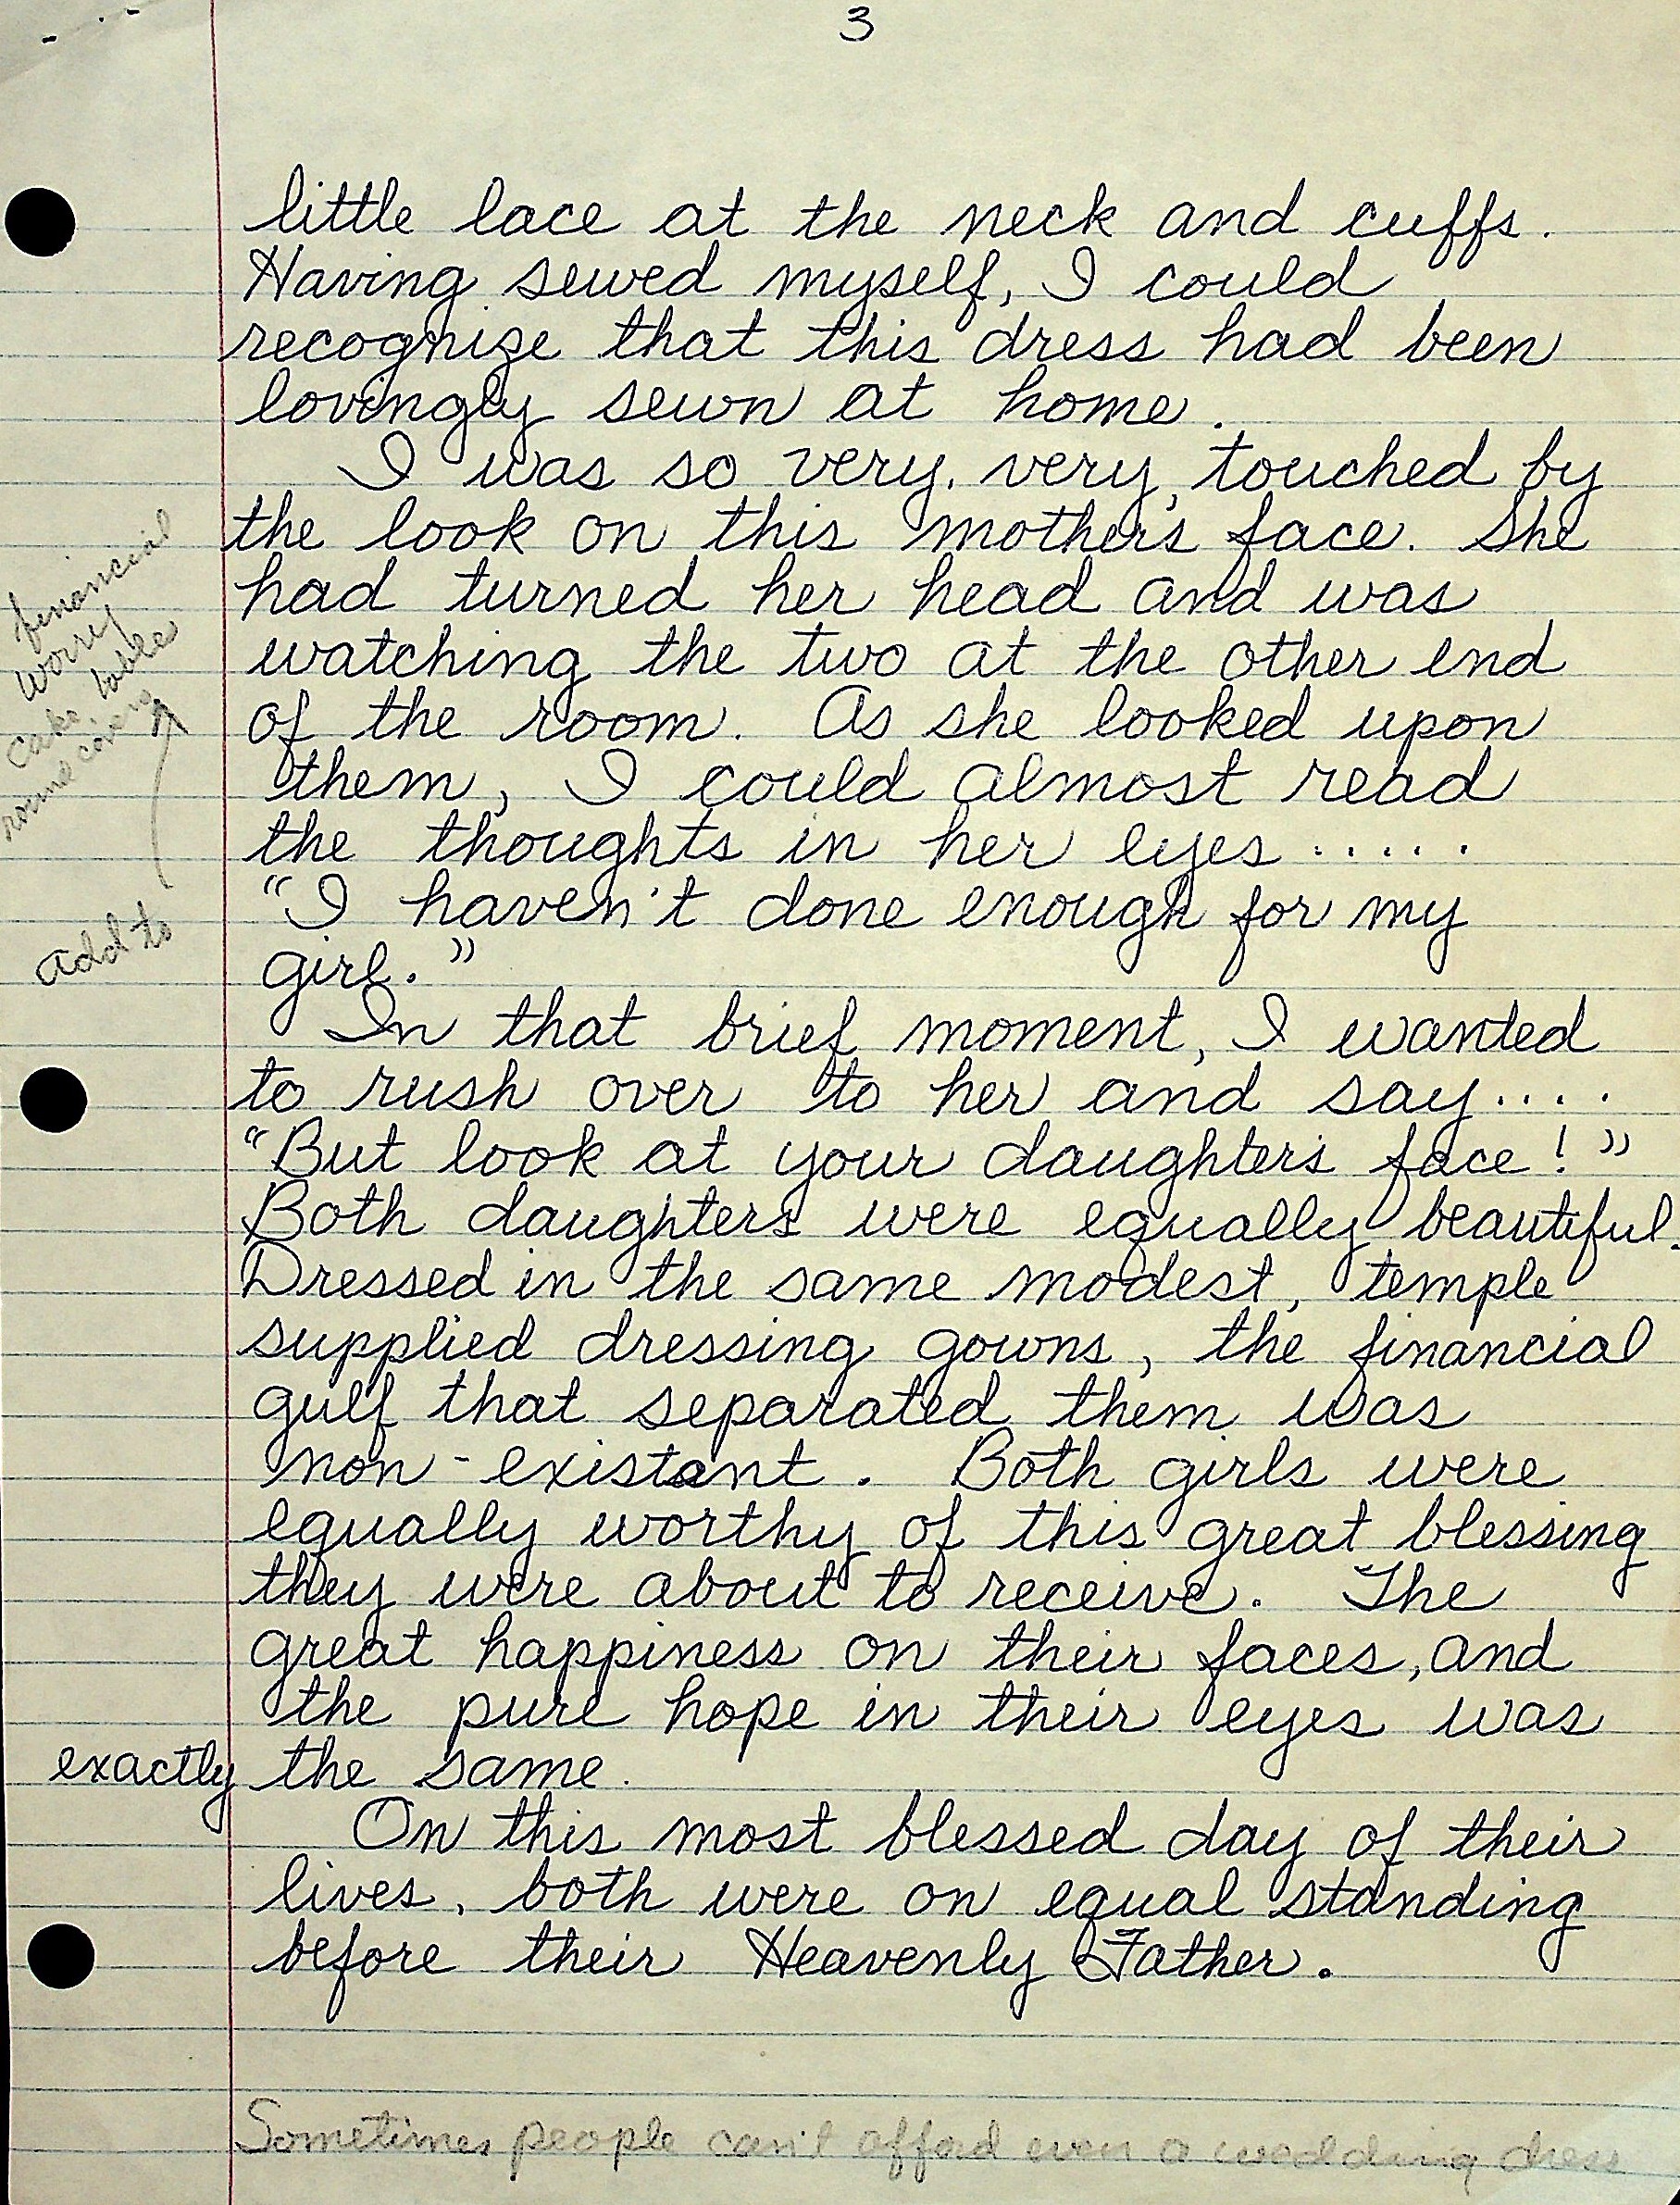 3
little lace at the neck and cuffs.
Having sewed myself, I could
recognize that this dress had been
lovingly sewn at home.
I was so very, very, touched by
the look on this mother's face. She
had turned her head and was
watching the two at the other end
of the room. As she looked upon
them, I could almost read
the thoughts in her eyes .....
"I haven't done enough for my
girl."
In that brief moment, I wanted
to rush over to her and say....
"But look at your daughter's face!"
Both daughters were equally beautiful.
Dressed in the same modest, temple
supplied dressing gowns, the financial
gulf that separated them was
non-existant. Both girls were
equally worthy of this great blessing
they were about to receive. The
great happiness on their faces, and
the pure hope in their eyes was
exactly the same.
On this most blessed day of their
lives, both were on equal standing
before their Heavenly Father.
Sometimes people can't afford even a wedding dress
financial
worry
cake table
add to